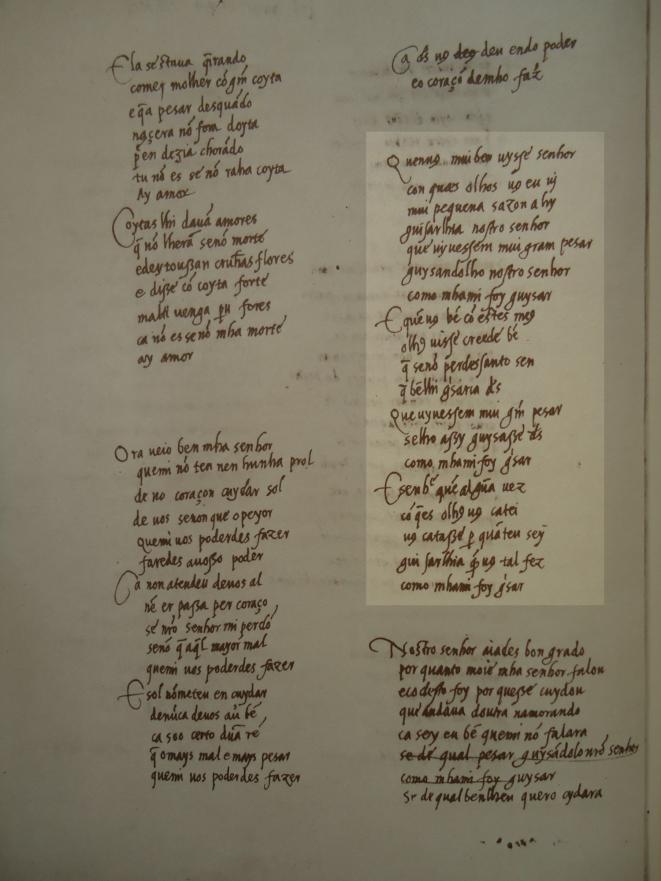 Ela sestaua q̃irando
comeg molher cõ gm̃ coyta
e q̃a pesar desquãdo
naçera nõ fora doyta
p̃ en dezia chorãdo
tu nõ es se nõ raha coyta
Ay amor
Coytas lhi dauã amores
q̃ nõ lherã senõ morte
e disse cõ coyta forte
ca nõ es senõ mha morte
ay amor
Ora ueio ben mha senhor
quemi nõ ten nen hunha prol
de no coraçon cuydar sol
de uos senon que o peyor
quemi uos poderdes fazer
faredes auosso poder
Ca non atendeu deuos al
nẽ er passa per coraço
se nr̃o senhor mi perdõ
senõ q̃ aq̃l mayor mal
quemi uos poderdes fazer
E sol nõmeteu en cuydar
denũca deuos aũ bẽ
ca soo certo dũa rẽ
q̃ o mays mal e mays pesar
quemi uos poderdes fazer
Ca d̃s nõ deu endo poder
eo coraçõ demho faz
Quenuo mui ben uysse senhor
con quaes olhos uo eu uj
mui pequena sazon a hy
guisarlhia nostro senhor
que uyuessem mui gram pesar
guysandolho nostro senhor
como mhami foy guysar
E que uo bẽ cõ estes meg
olhg uisse creede bẽ
q̃ senõ perdessanto sen
q̃ bẽ lhi g̃saria d̃s
Que uyuessem mui gm̃ pesar
selho assy guysasse d̃s
como mhami foy g̃sar
E senhͦ que algũa uez
cõ q̃es olhg ug catei
ug catasse p quãteu sey
gui sarlhia q̃ ug tal fez
como mhami foy g̃sar
Nostro senhor aiades bon grado
por quanto moie mha senhor falou
e codesto foy por quesse cuydou
que andaua doutra namorando
ca sey eu bẽ quemi nõ falara
se de qual pesar guysãdolo nr̃o senhor
como mhami foy guysar
Se de qual ben lheu quero cydara